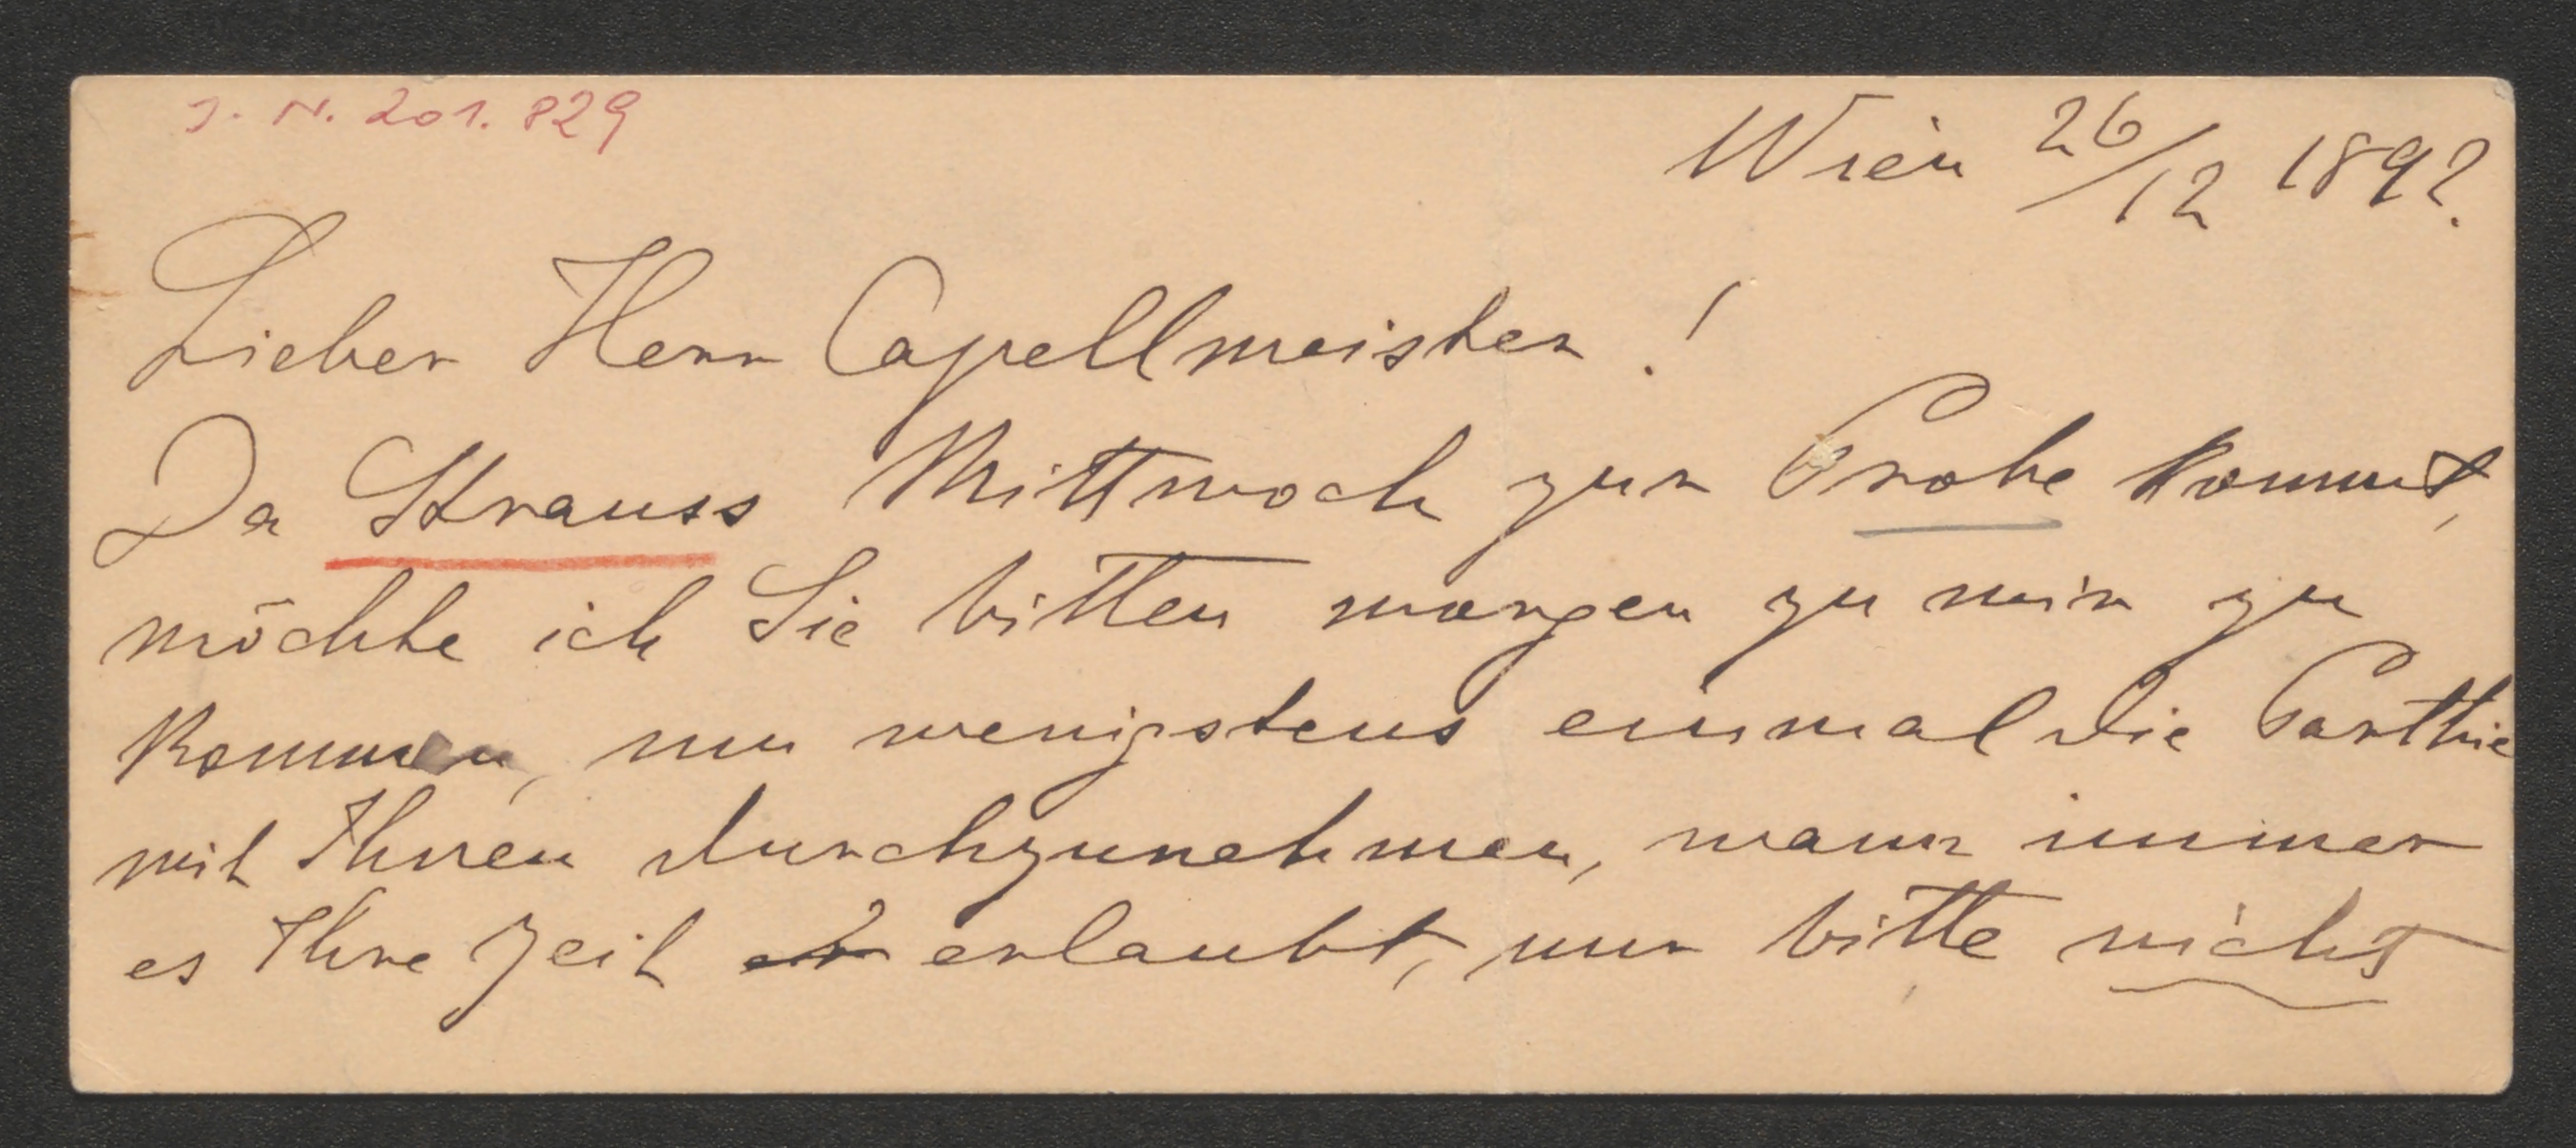 J. N. 201.829
Wien 26/12 1892.
Lieber Herr Capellmeister!
Da Strauss Mittwoch zur Probe kommt,
möchte ich Sie bitten morgen zu mir zu
kommen, um wenigstens einmal die Parthie
mit Ihnen durchzunehmen, wann immer
es Ihre Zeit erlaubt, nur bitte nicht